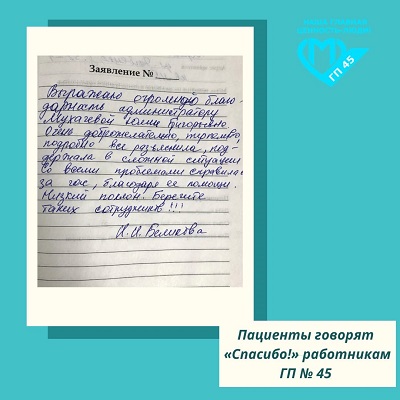 НАША ЛЮБИМАЯ
ГП 45
Заявление №
Выражаю огромную благо-
дарность администратору
Мухаевой Юлии Григорьевне
Очень доброжелательно, терпеливо,
подробно все разъяснила, под-
держала в сложной ситуации
Со всеми проблемами справила
за час, благодаря ее помощи.
Низкий поклон. Берегите
таких сотрудников!!!
Пациенты говорят
«Спасибо!» работникам
ГП № 45